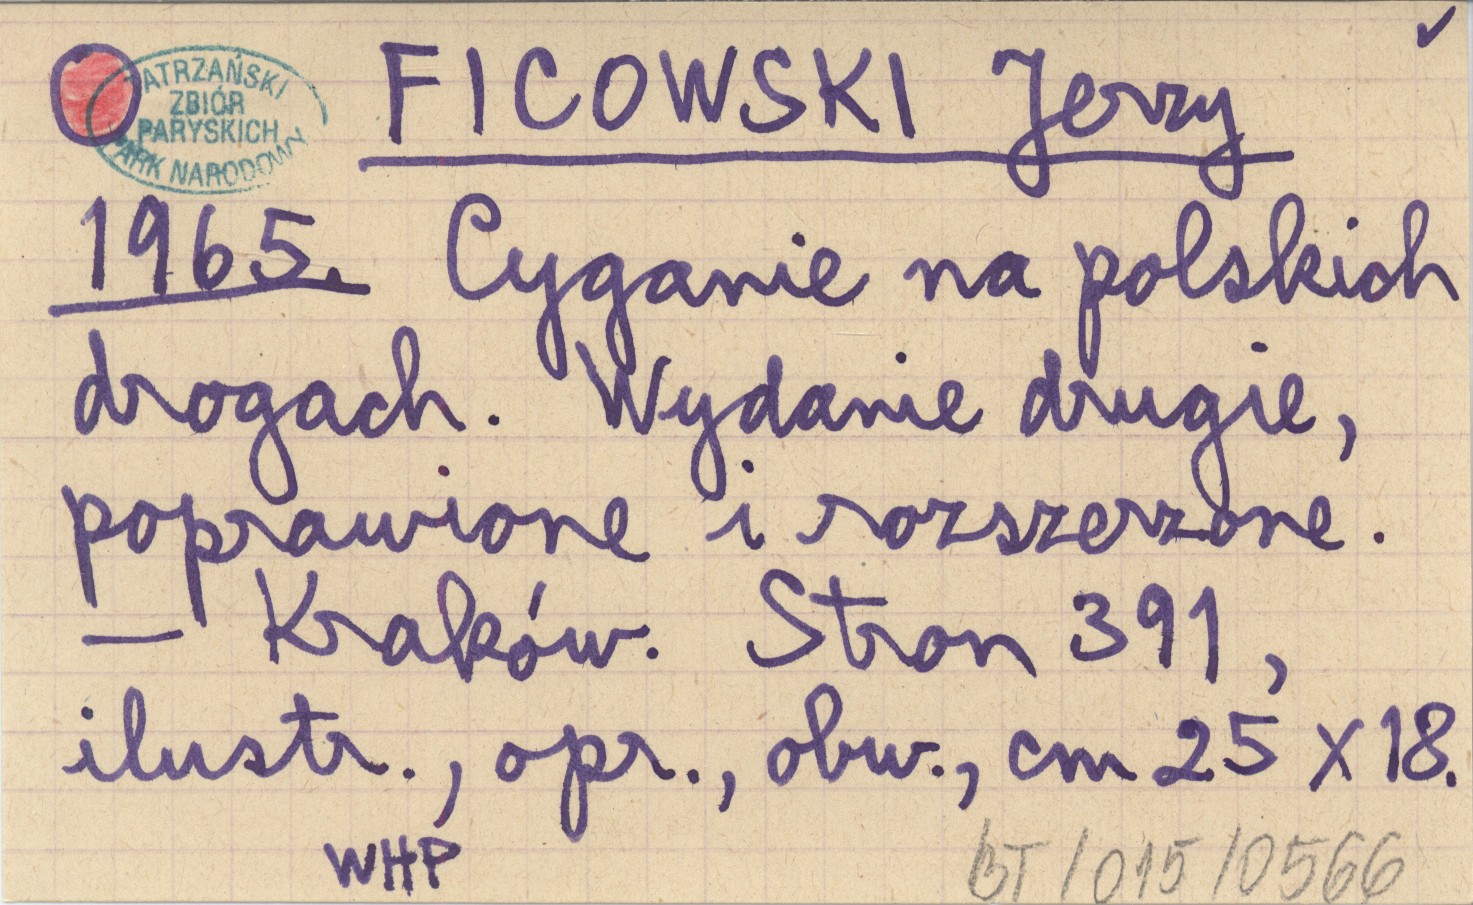 ✓
TATRZAŃSKI
ZBIÓR
PARYSKICH
PARK NARODOWY
FICOWSKI Jerzy
1965. Cyganie na polskich
drogach. Wydanie drugie,
poprawione i rozszerzone.
— Kraków. Stron 391,
ilustr., opr., obw., cm 25 x 18.
WHP
BT/015/0566